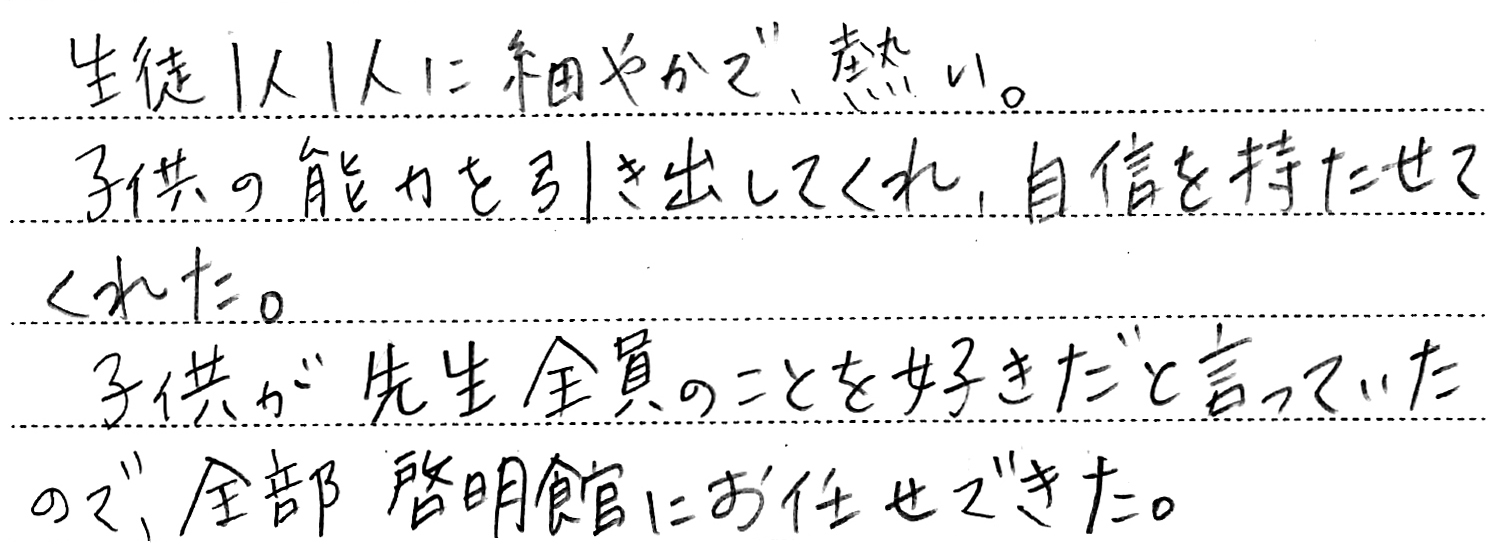 生徒1人1人に細やかで、熱い。
子供の能力を引き出してくれ、自信を持たせて
くれた。
子供が先生全員のことを好きだと言っていた
ので、全部啓明館にお任せできた。